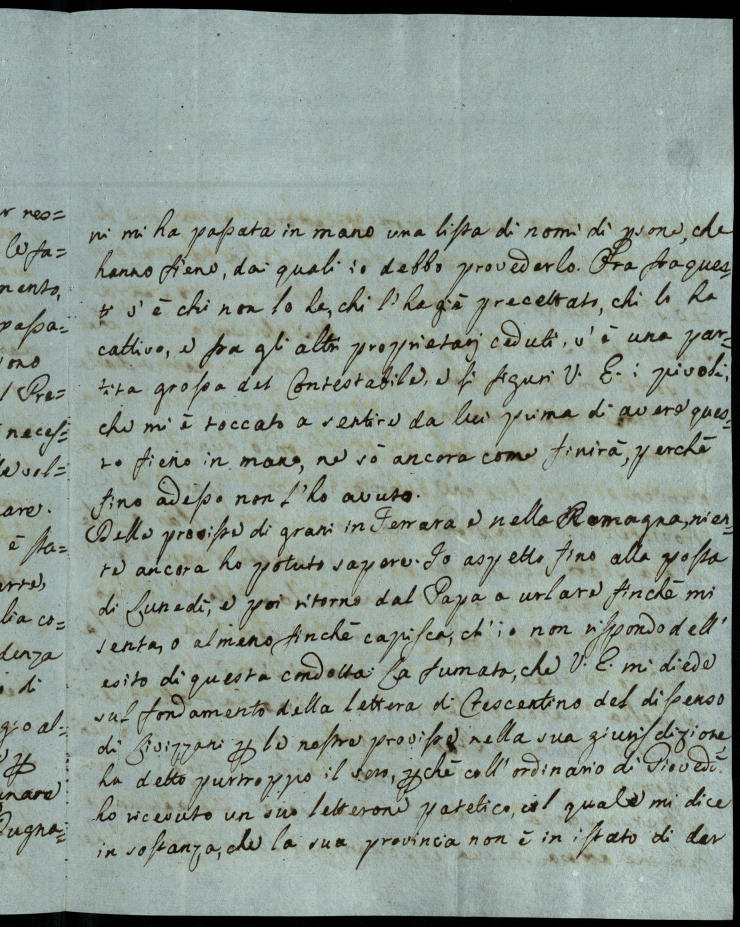 r nes=
le fa=
mento,
passa=
sono
l Pre=
necess=
le sol=
are.
è sta=
lia co=
denza
di
gio al=
ꝑ
unare
Pugna=
ni mi ha passata in mano una lista di nomi di ꝑsone, che
hanno fieno, dai quali io debbo provederlo. Ora fra ques=
ti v'è chi non lo ha, chi l'ha già precettato, chi lo ha
cattivo, e fra gli altri proprietarj ceduti, v'è una par=
tita grossa del Contestabile, e si figuri V. E. i pivoli,
che mi è toccato a sentire da lui prima di avere ques=
to fieno in mano, ne sò ancora come finirà, perchè
fino adesso non l'ho avuto.
Delle proviste di grani in Ferrara e nella Romagna, nien=
te ancora ho potuto sapere. Io aspetto fino alla posta
di Lunedì, e poi ritorno dal Papa a urlare finchè mi
senta, o almeno finchè capisca, ch'io non rispondo dell'
esito di questa condotta. La fumata, che V. E. mi diede
sul fondamento della lettera di Crescentino del dissenso
di Rivizzani ꝑ le nostre proviste nella sua giurisdizione
ha detto purtroppo il vero, ꝑchè coll'ordinario di Giovedì
ho ricevuto un suo letterone patetico, col quale mi dice
in sostanza, che la sua provincia non è in istato di dar